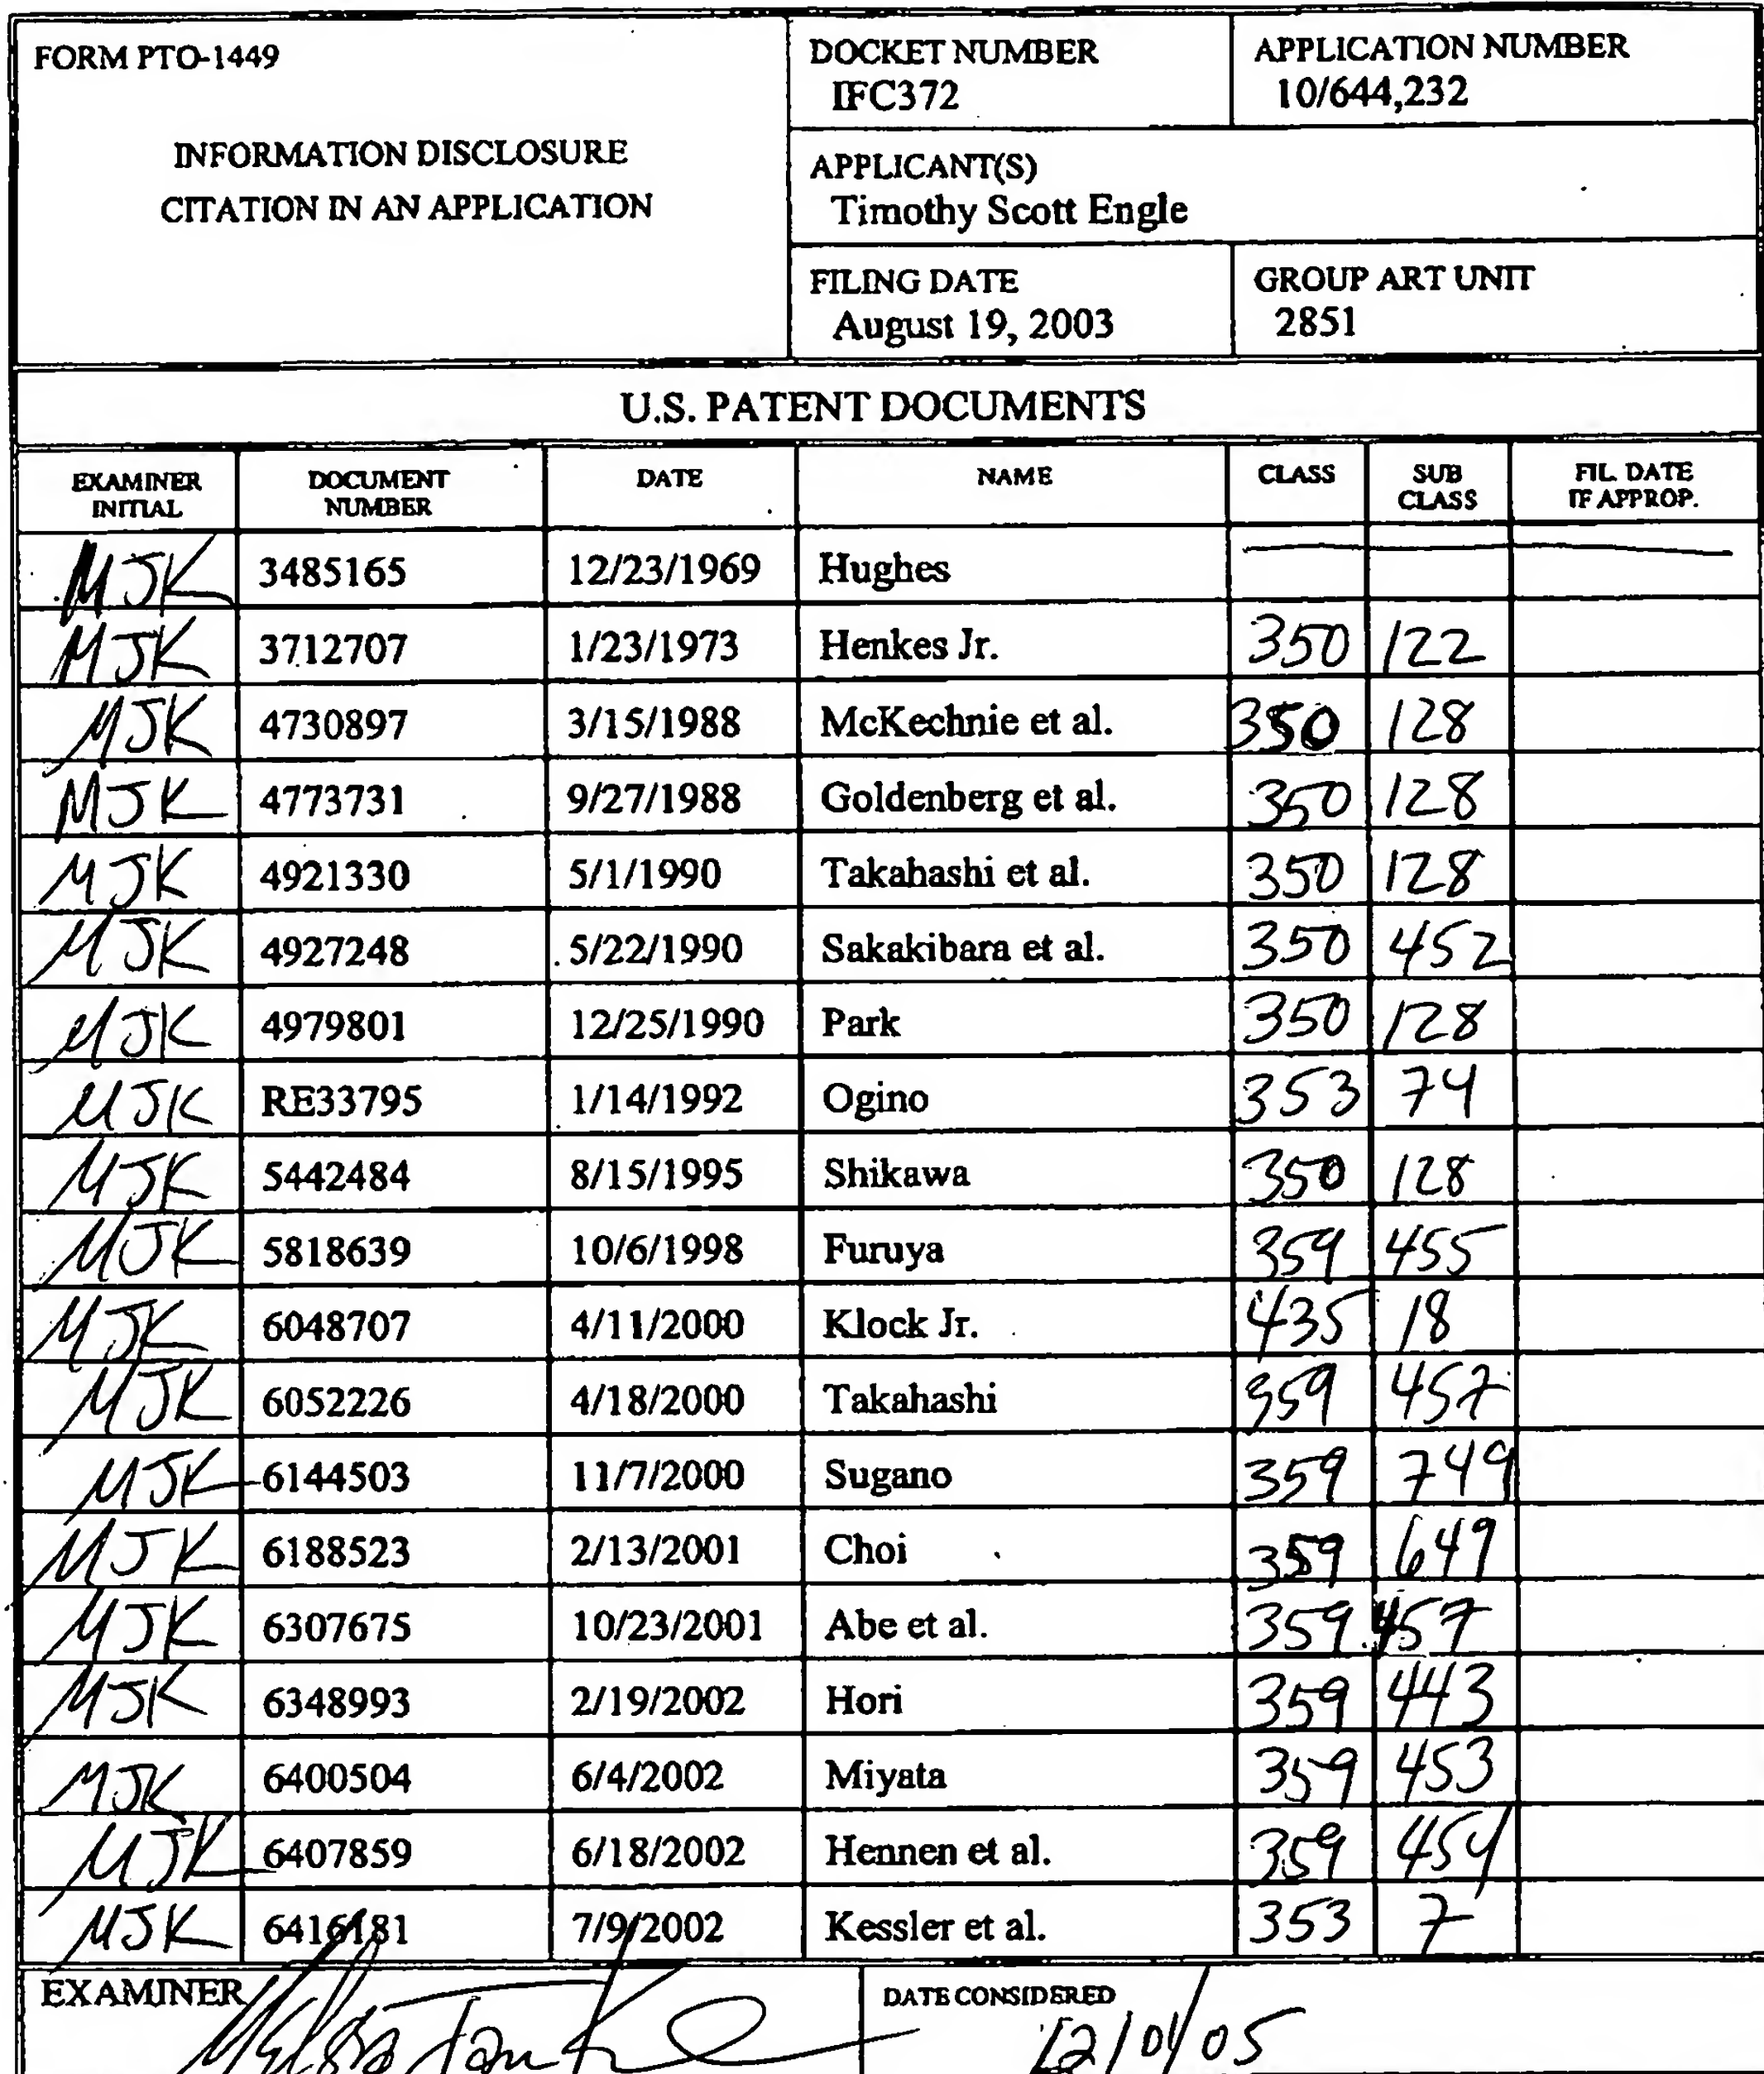 FORM PTO-1449
INFORMATION DISCLOSURE
CITATION IN AN APPLICATION
DOCKET NUMBER
IFC372
APPLICATION NUMBER
10/644,232
APPLICANT(S)
Timothy Scott Engle
FILING DATE
August 19, 2003
GROUP ART UNIT
2851
U.S. PATENT DOCUMENTS
EXAMINER INITIAL DOCUMENT NUMBER DATE NAME CLASS SUB CLASS FIL. DATE IF APPROP.
MJK 3485165 12/23/1969 Hughes
MJK 3712707 1/23/1973 Henkes Jr. 350 122
MJK 4730897 3/15/1988 McKechnie et al. 350 128
MJK 4773731 9/27/1988 Goldenberg et al. 350 128
MJK 4921330 5/1/1990 Takahashi et al. 350 128
MJK 4927248 5/22/1990 Sakakibara et al. 350 452
MJK 4979801 12/25/1990 Park 350 128
MJK RE33795 1/14/1992 Ogino 353 74
MJK 5442484 8/15/1995 Shikawa 350 128
MJK 5818639 10/6/1998 Furuya 359 455
MJK 6048707 4/11/2000 Klock Jr. 435 18
MJK 6052226 4/18/2000 Takahashi 359 457
MJK 6144503 11/7/2000 Sugano 359 749
MJK 6188523 2/13/2001 Choi 359 649
MJK 6307675 10/23/2001 Abe et al. 359 457
MJK 6348993 2/19/2002 Hori 359 443
MJK 6400504 6/4/2002 Miyata 359 453
MJK 6407859 6/18/2002 Hennen et al. 359 454
MJK 6416181 7/9/2002 Kessler et al. 353 7
EXAMINER
DATE CONSIDERED
12/01/05